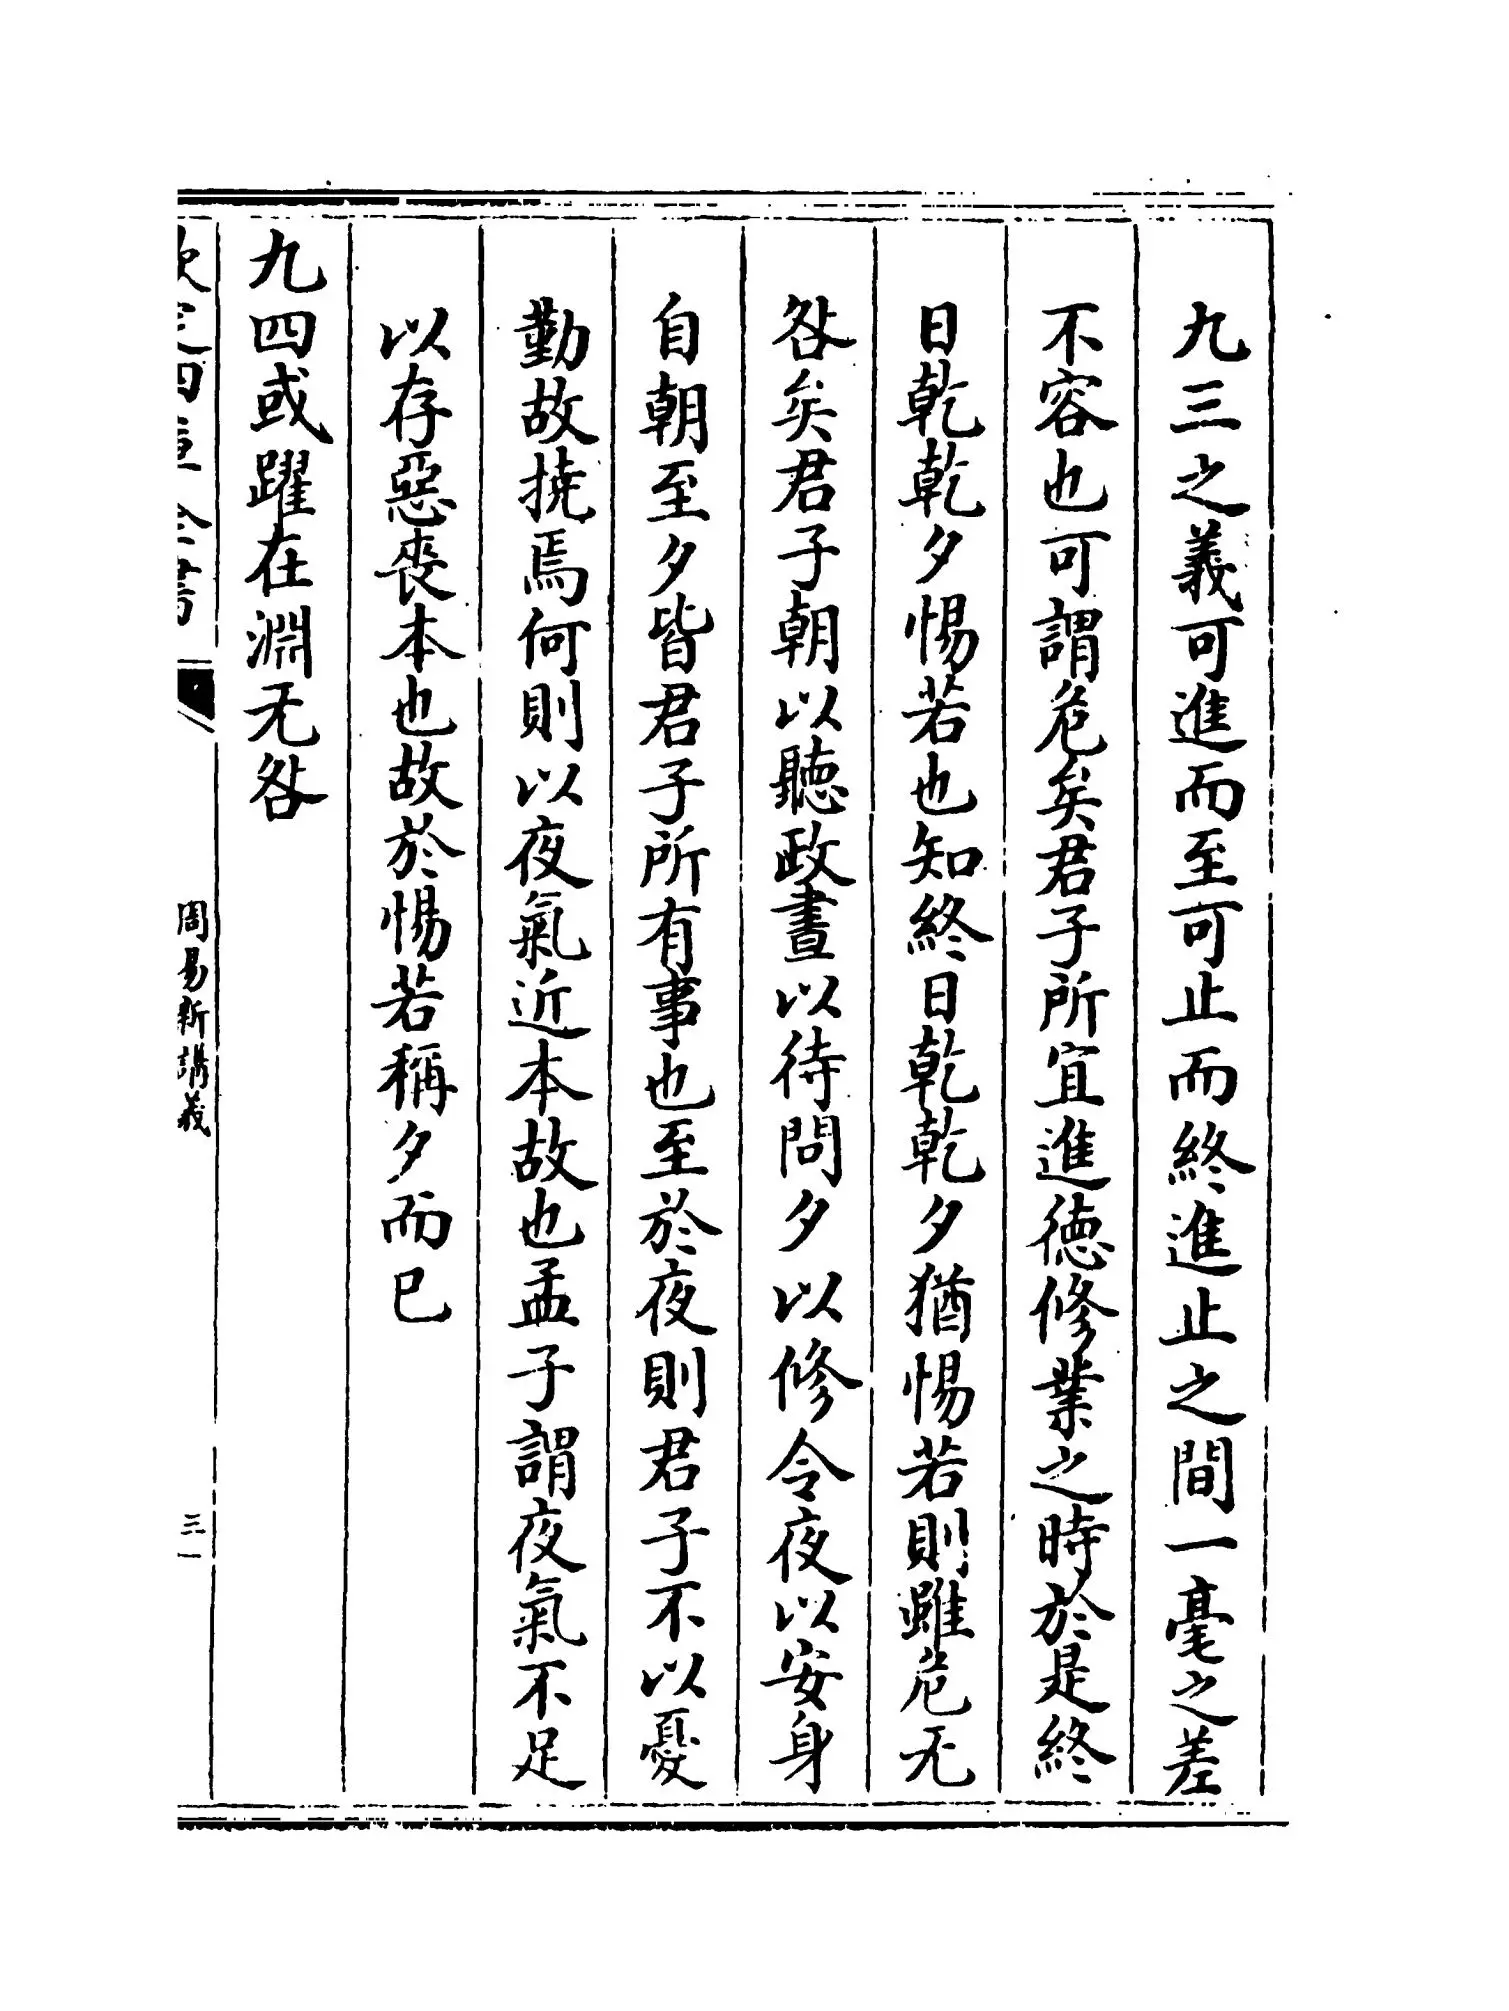 九三之義可進而至可止而終進止之間一毫之差
不容也可謂危矣君子所宜進德修業之時於是終
日乾乾夕惕若也知終日乾乾夕猶惕若則雖危无
咎矣君子朝以聽政晝以待問夕以修令夜以安身
自朝至夕皆君子所有事也至於夜則君子不以憂
勤故撓焉何則以夜氣近本故也孟子謂夜氣不足
以存惡喪本也故於惕若稱夕而已
九四或躍在淵无咎
欽定四庫全書
周易新講義
三一